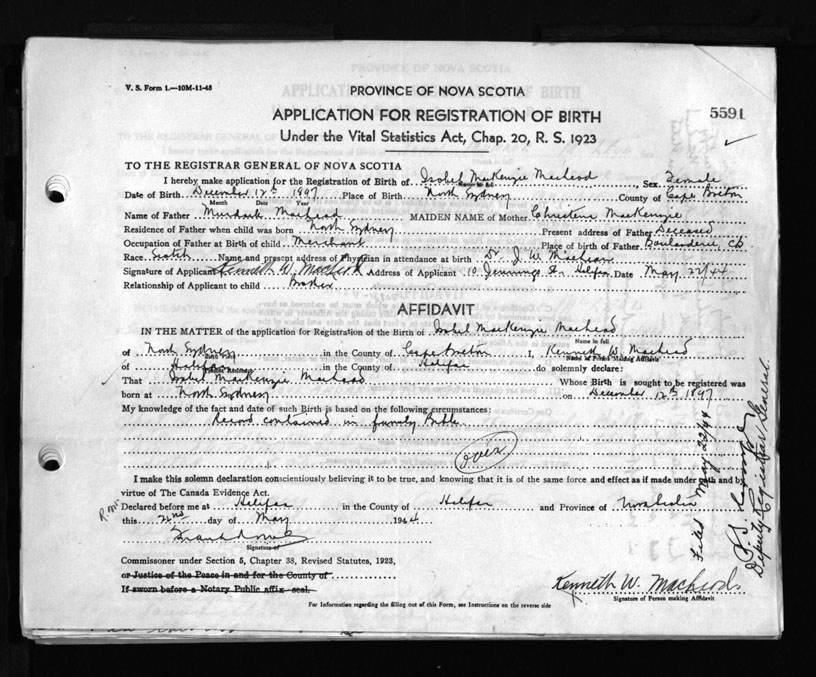 V. S. Form 1.—10M-11-43
PROVINCE OF NOVA SCOTIA
5591
APPLICATION FOR REGISTRATION OF BIRTH
Under the Vital Statistics Act, Chap. 20, R. S. 1923
TO THE REGISTRAR GENERAL OF NOVA SCOTIA
I hereby make application for the Registration of Birth of Isobel MacKenzie MacLeod, Sex Female
Name in full
Date of Birth December 12th 1897 Place of Birth North Sydney County of Cape Breton
Month Date Year
Name of Father Murdoch MacLeod MAIDEN NAME of Mother Christene MacKenzie
Residence of Father when child was born North Sydney Present address of Father Deceased
Occupation of Father at Birth of child Merchant Place of Birth of Father Boularderie, C.B.
Race Scotch Name and present address of Physician in attendance at birth Dr. J. W. MacLean
Signature of Applicant Kenneth W. MacLeod Address of Applicant 10 Jennings St. Halifax Date May 22/44
Relationship of Applicant to child Brother
AFFIDAVIT
IN THE MATTER of the application for Registration of the Birth of Isobel MacKenzie MacLeod
Name in full
of North Sydney in the County of Cape Breton I, Kenneth W. MacLeod
Name of Person Making Affidavit
of Halifax in the County of Halifax do solemnly declare:
That Isobel MacKenzie MacLeod Whose Birth is sought to be registered was
born at North Sydney on December 12th 1897
My knowledge of the fact and date of such Birth is based on the following circumstances:
Record contained in family Bible
over
I make this solemn declaration conscientiously believing it to be true, and knowing that it is of the same force and effect as if made under oath and by
virtue of The Canada Evidence Act.
Declared before me at Halifax in the County of Halifax and Province of Nova Scotia
this 22nd day of May 1944
Signature of
Commissoner under Section 5, Chapter 38, Revised Statutes, 1923,
or Justice of the Peace in and for the County of
If sworn before a Notary Public affix seal.
Kenneth W. MacLeod
Signature of Person making Affidavit
For Information regarding the filling out of this Form, see Instructions on the reverse side
Filed May 22/44
Deputy Registrar General.